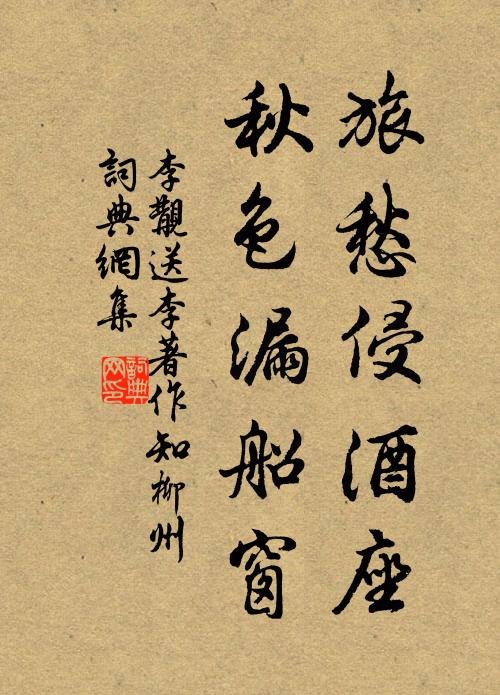 旅愁侵酒座
秋色漏船窗
李覯送李著作知柳州
詞典網集
詞典網印